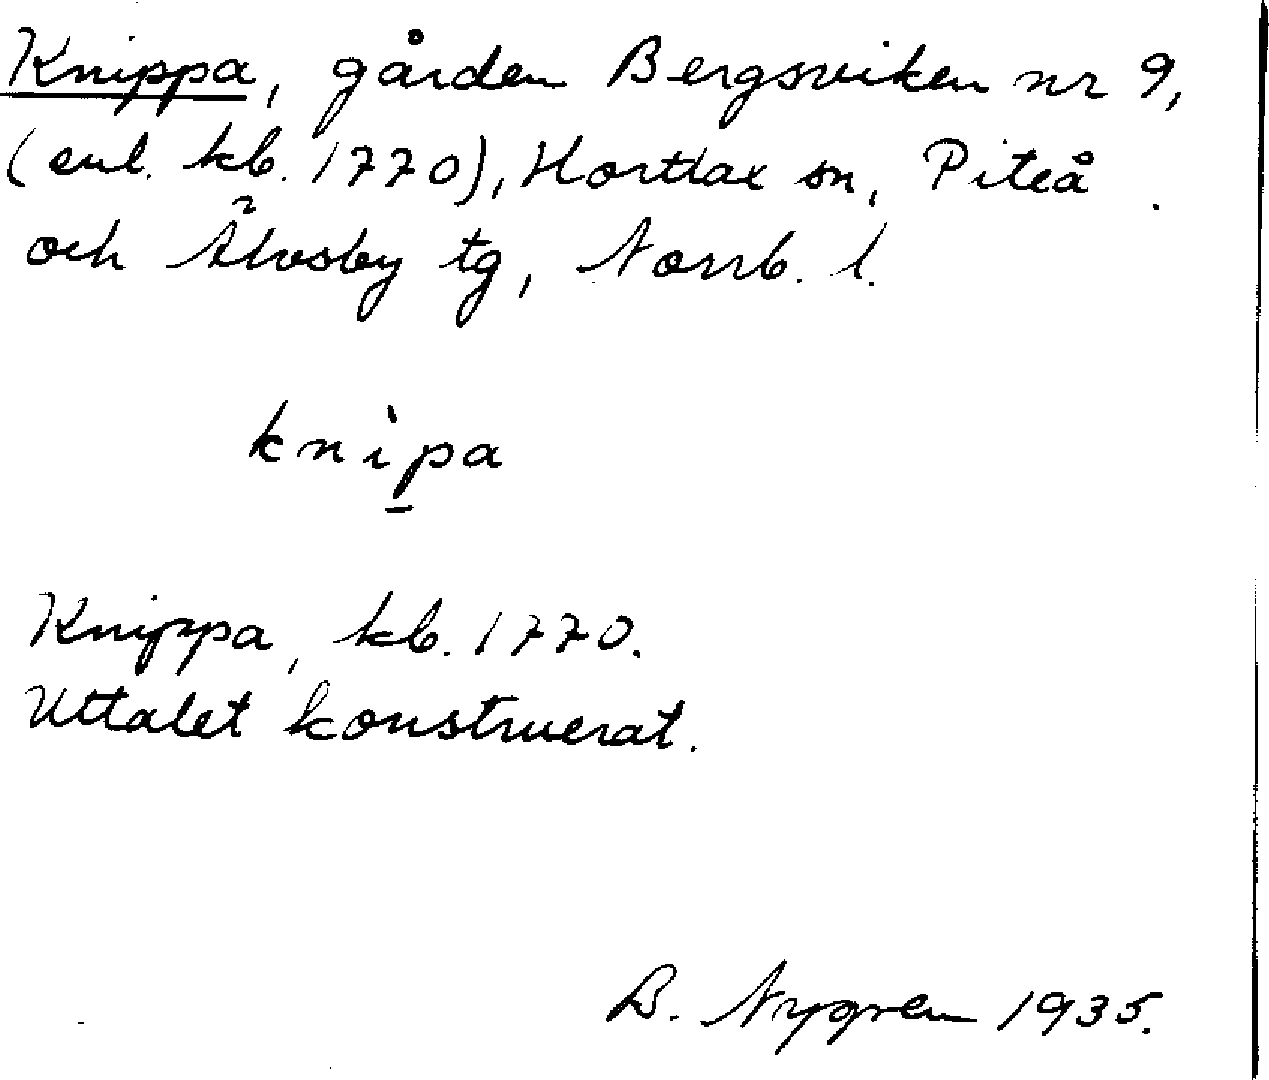 Knippa, gården Bergsviken nr 9,
(enl. kb. 1770), Hortlax sn, Piteå
och Älvsby tg, Norrb. l.
knìp̲a
Knippa, kb. 1770.
Uttalet konstruerat.
B. Nygren 1935.